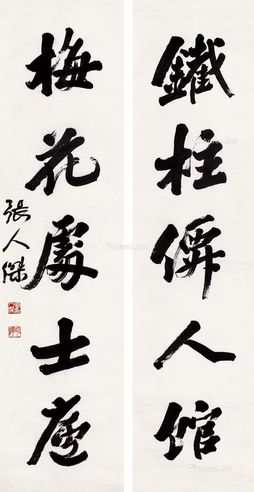 鐵柱僊人館
梅花處士廬
張人傑